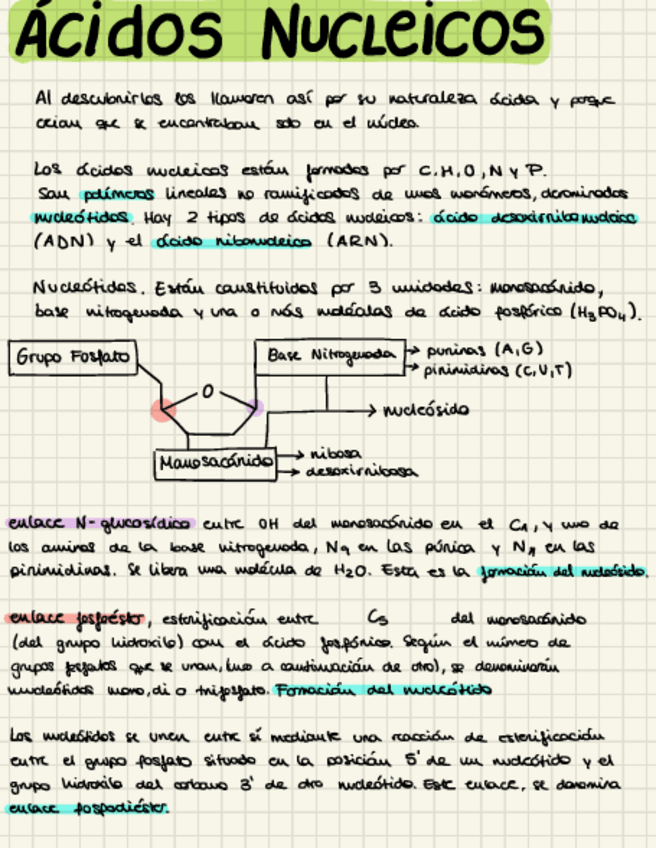 Ácidos Nucleicos
Al descubrirlos los llamaron así por su naturaleza ácida y porque
creían que se encontraban solo en el núcleo.
Los ácidos nucleicos están formados por C,H,O,N y P.
Son polímeros lineales no ramificados de unos monómeros, denominados
nucleótidos. Hay 2 tipos de ácidos nucleicos: ácido desoxirribonucleico
(ADN) y el ácido ribonucleico (ARN).
Nucleótidos. Están constituidos por 3 unidades: monosacárido,
base nitrogenada y una o más moléculas de ácido fosfórico (H₃PO₄).
Grupo Fosfato
Base Nitrogenada → purinas (A,G)
→ pirimidinas (C,U,T)
O
→ nucleósido
Monosacárido → ribosa
→ desoxirribosa
enlace N-glucosídico entre OH del monosacárido en el C₁, y uno de
los aminos de la base nitrogenada, N₉ en las púrica y N₁ en las
pirimidinas. Se libera una molécula de H₂O. Esta es la formación del nucleósido.
enlace fosfoéster, esterificación entre C₅ del monosacárido
(del grupo hidroxilo) con el ácido fosfórico. Según el número de
grupos fosfatos que se unan, (uno a continuación de otro), se denominarán
nucleótidos mono, di o trifosfato. Formación del nucleótido
Los nucleótidos se unen entre sí mediante una reacción de esterificación
entre el grupo fosfato situado en la posición 5' de un nucleótido y el
grupo hidroxilo del carbono 3' de otro nucleótido. Este enlace, se denomina
enlace fosfodiéster.